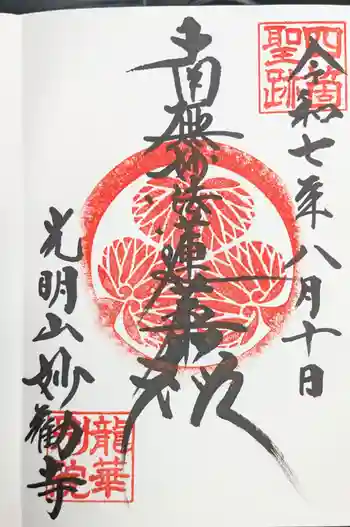 四箇
聖跡
令和七年八月十日
南無妙法蓮華経
光明山妙勧寺
龍華